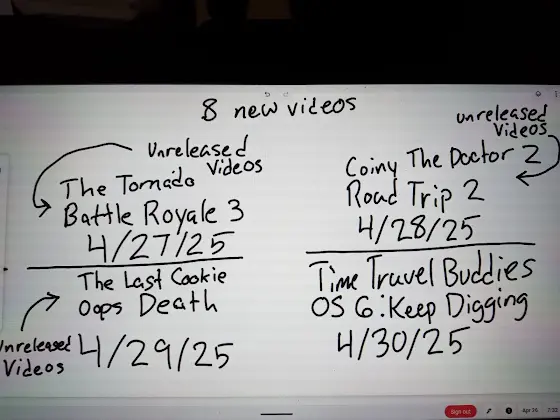 8 new videos
unreleased
Videos
Unreleased
Videos
The Tornado
Battle Royale 3
4/27/25
Coiny The Doctor 2
Road Trip 2
4/28/25
The Last Cookie
Oops Death
4/29/25
Unreleased
Videos
Time Travel Buddies
OS 6: Keep Digging
4/30/25
Sign out
Apr 26